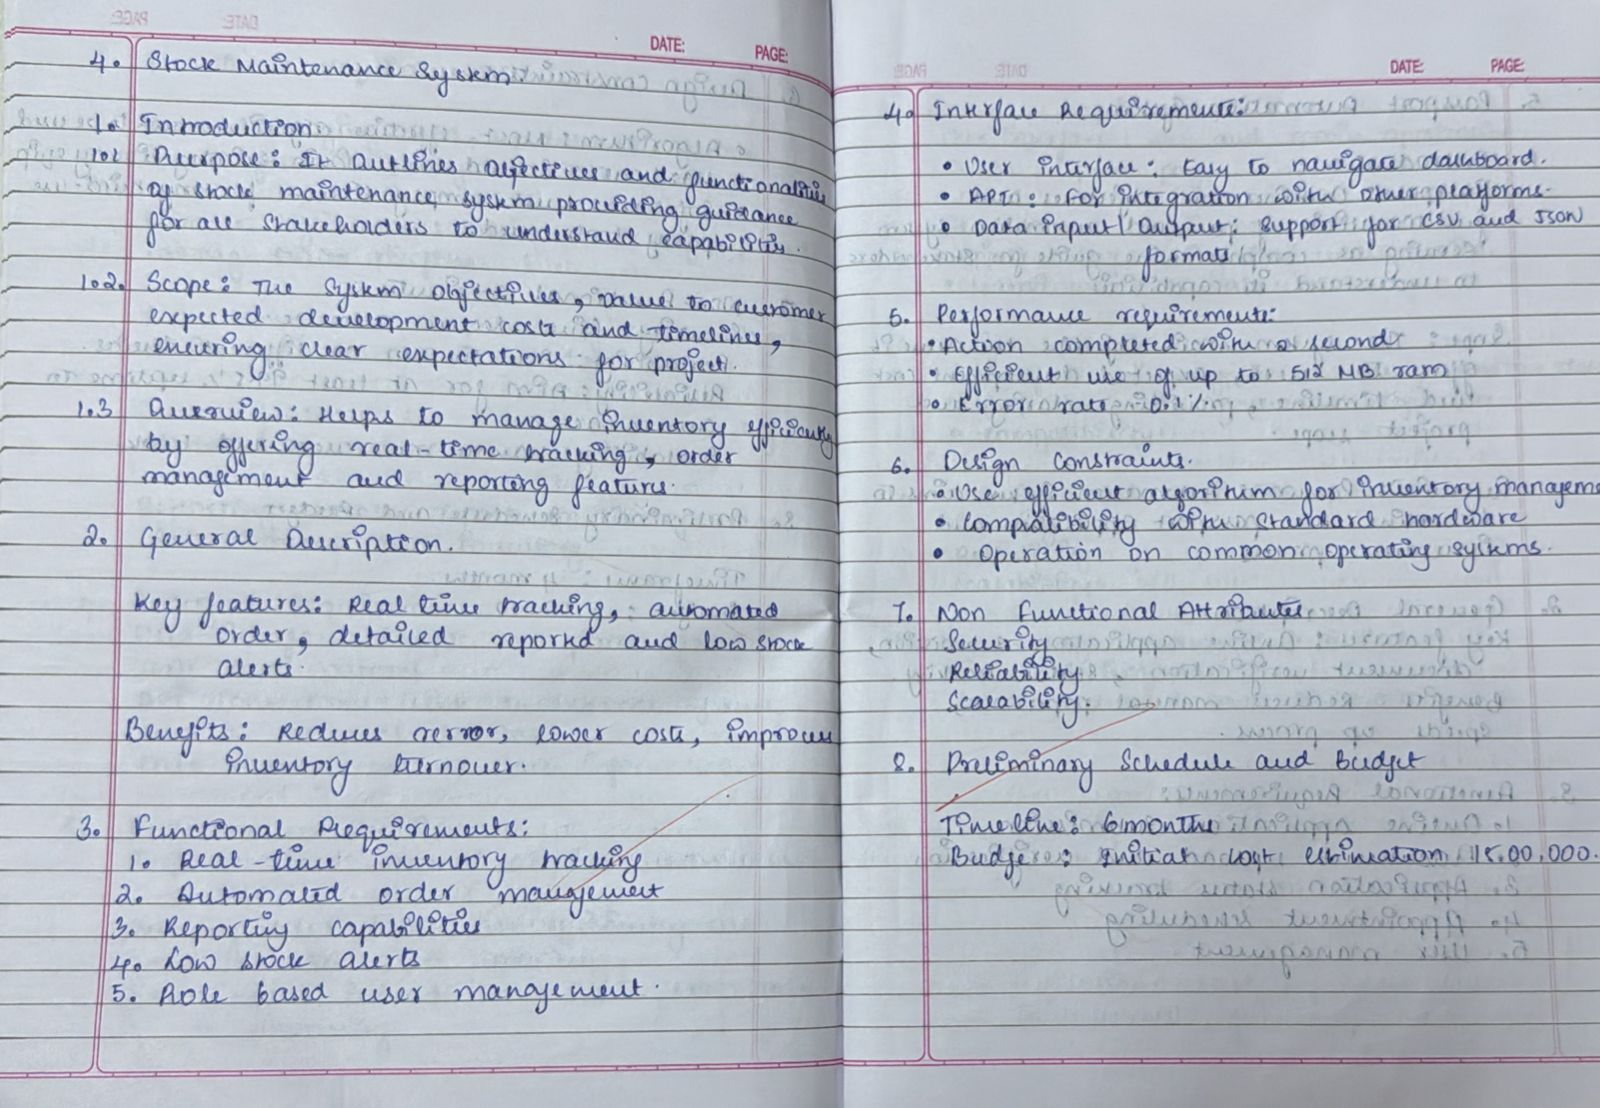 DATE: PAGE:
4. Stock Maintenance System
1. Introduction
1.1 Purpose: It outlines objectives and functionalities
of stock maintenance system providing guidance
for all stakeholders to understand capabilities.
1.2. Scope: The System objectives, value to customer
expected development costs and timelines,
ensuring clear expectations for project.
1.3 Overview: Helps to manage inventory efficiently
by offering real-time tracking, order
management and reporting features.
2. General Description.
Key features: Real time tracking, automated
order, detailed reported and low stock
alerts.
Benefits: Reduces error, lower costs, improves
inventory turnover.
3. Functional Requirements:
1. Real-time inventory tracking
2. Automated order management
3. Reporting capabilities
4. Low stock alerts
5. Role based user management.
DATE: PAGE:
4. Interface Requirements:
• User interface: Easy to navigate dashboard.
• API: For integration with other platforms.
• Data input/Output: Support for CSV and JSON
formats
5. Performance requirements:
• Action completed with 2 seconds
• Efficient use of up to 512 MB ram
• Error rate 0.1%.
6. Design constraints.
• Use efficient algorithm for inventory managem
• Compatibility with standard hardware
• Operation on common operating systems.
7. Non Functional Attributes
Security
Reliability
Scalability.
8. Preliminary Schedule and Budget
Timeline: 6 months
Budge: Initial cost estimation 15,00,000.